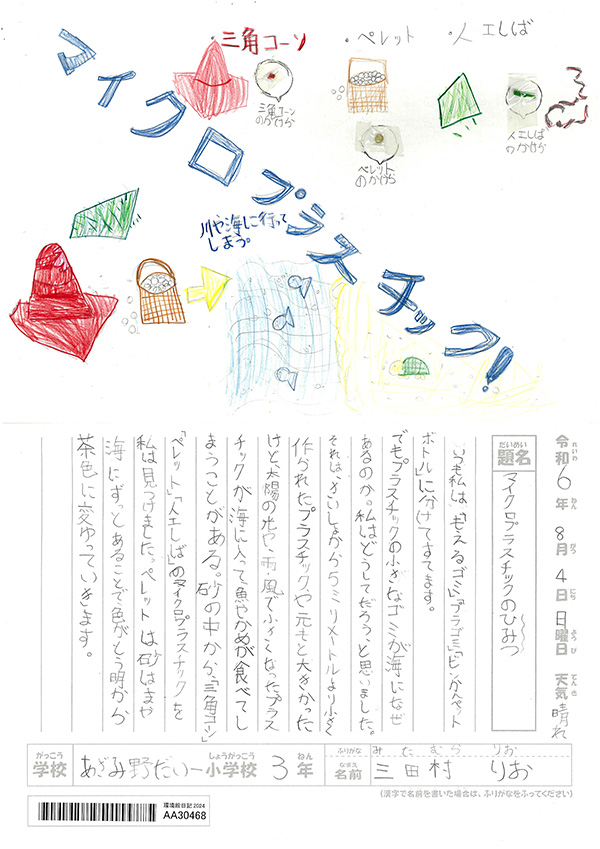 マイクロプラスチック!
・三角コーン
・ペレット
・人工しば
三角コーン
のかけら
ペレット
のかけら
人工しば
のかけら
川や海に行って
しまう。
令和6年8月4日日曜日 天気 晴れ
れいわ ねん がつ にち ようび てんき
だいめい
題名
マイクロプラスチックのひみつ
いつも私は、「もえるゴミ」「プラゴミ」「ビンかんペット
ボトル」に分けてすてます。
でもプラスチックの小さなゴミが海になぜ
あるのか。私はどうしてだろうと思いました。
それは、さいしょから5ミリメートルより小さく
作られたプラスチックや元もと大きかった
けど太陽の光や、雨、風で小さくなったプラス
チックが海に入って魚やかめが食べてし
まうことがある。砂の中から、「三角コーン」
「ペレット」「人工しば」のマイクロプラスチックを
私は見つけました。ペレットは砂はまや
海にずっとあることで色がとう明から
茶色に変ゆっていきます。
がっこう しょうがっこう ねん
学校 あざみ野だい一小学校 3年
ふりがな みたむら りお
なまえ
名前 三田村 りお
(漢字で名前を書いた場合は、ふりがなをふってください)
環境絵日記2024
AA30468